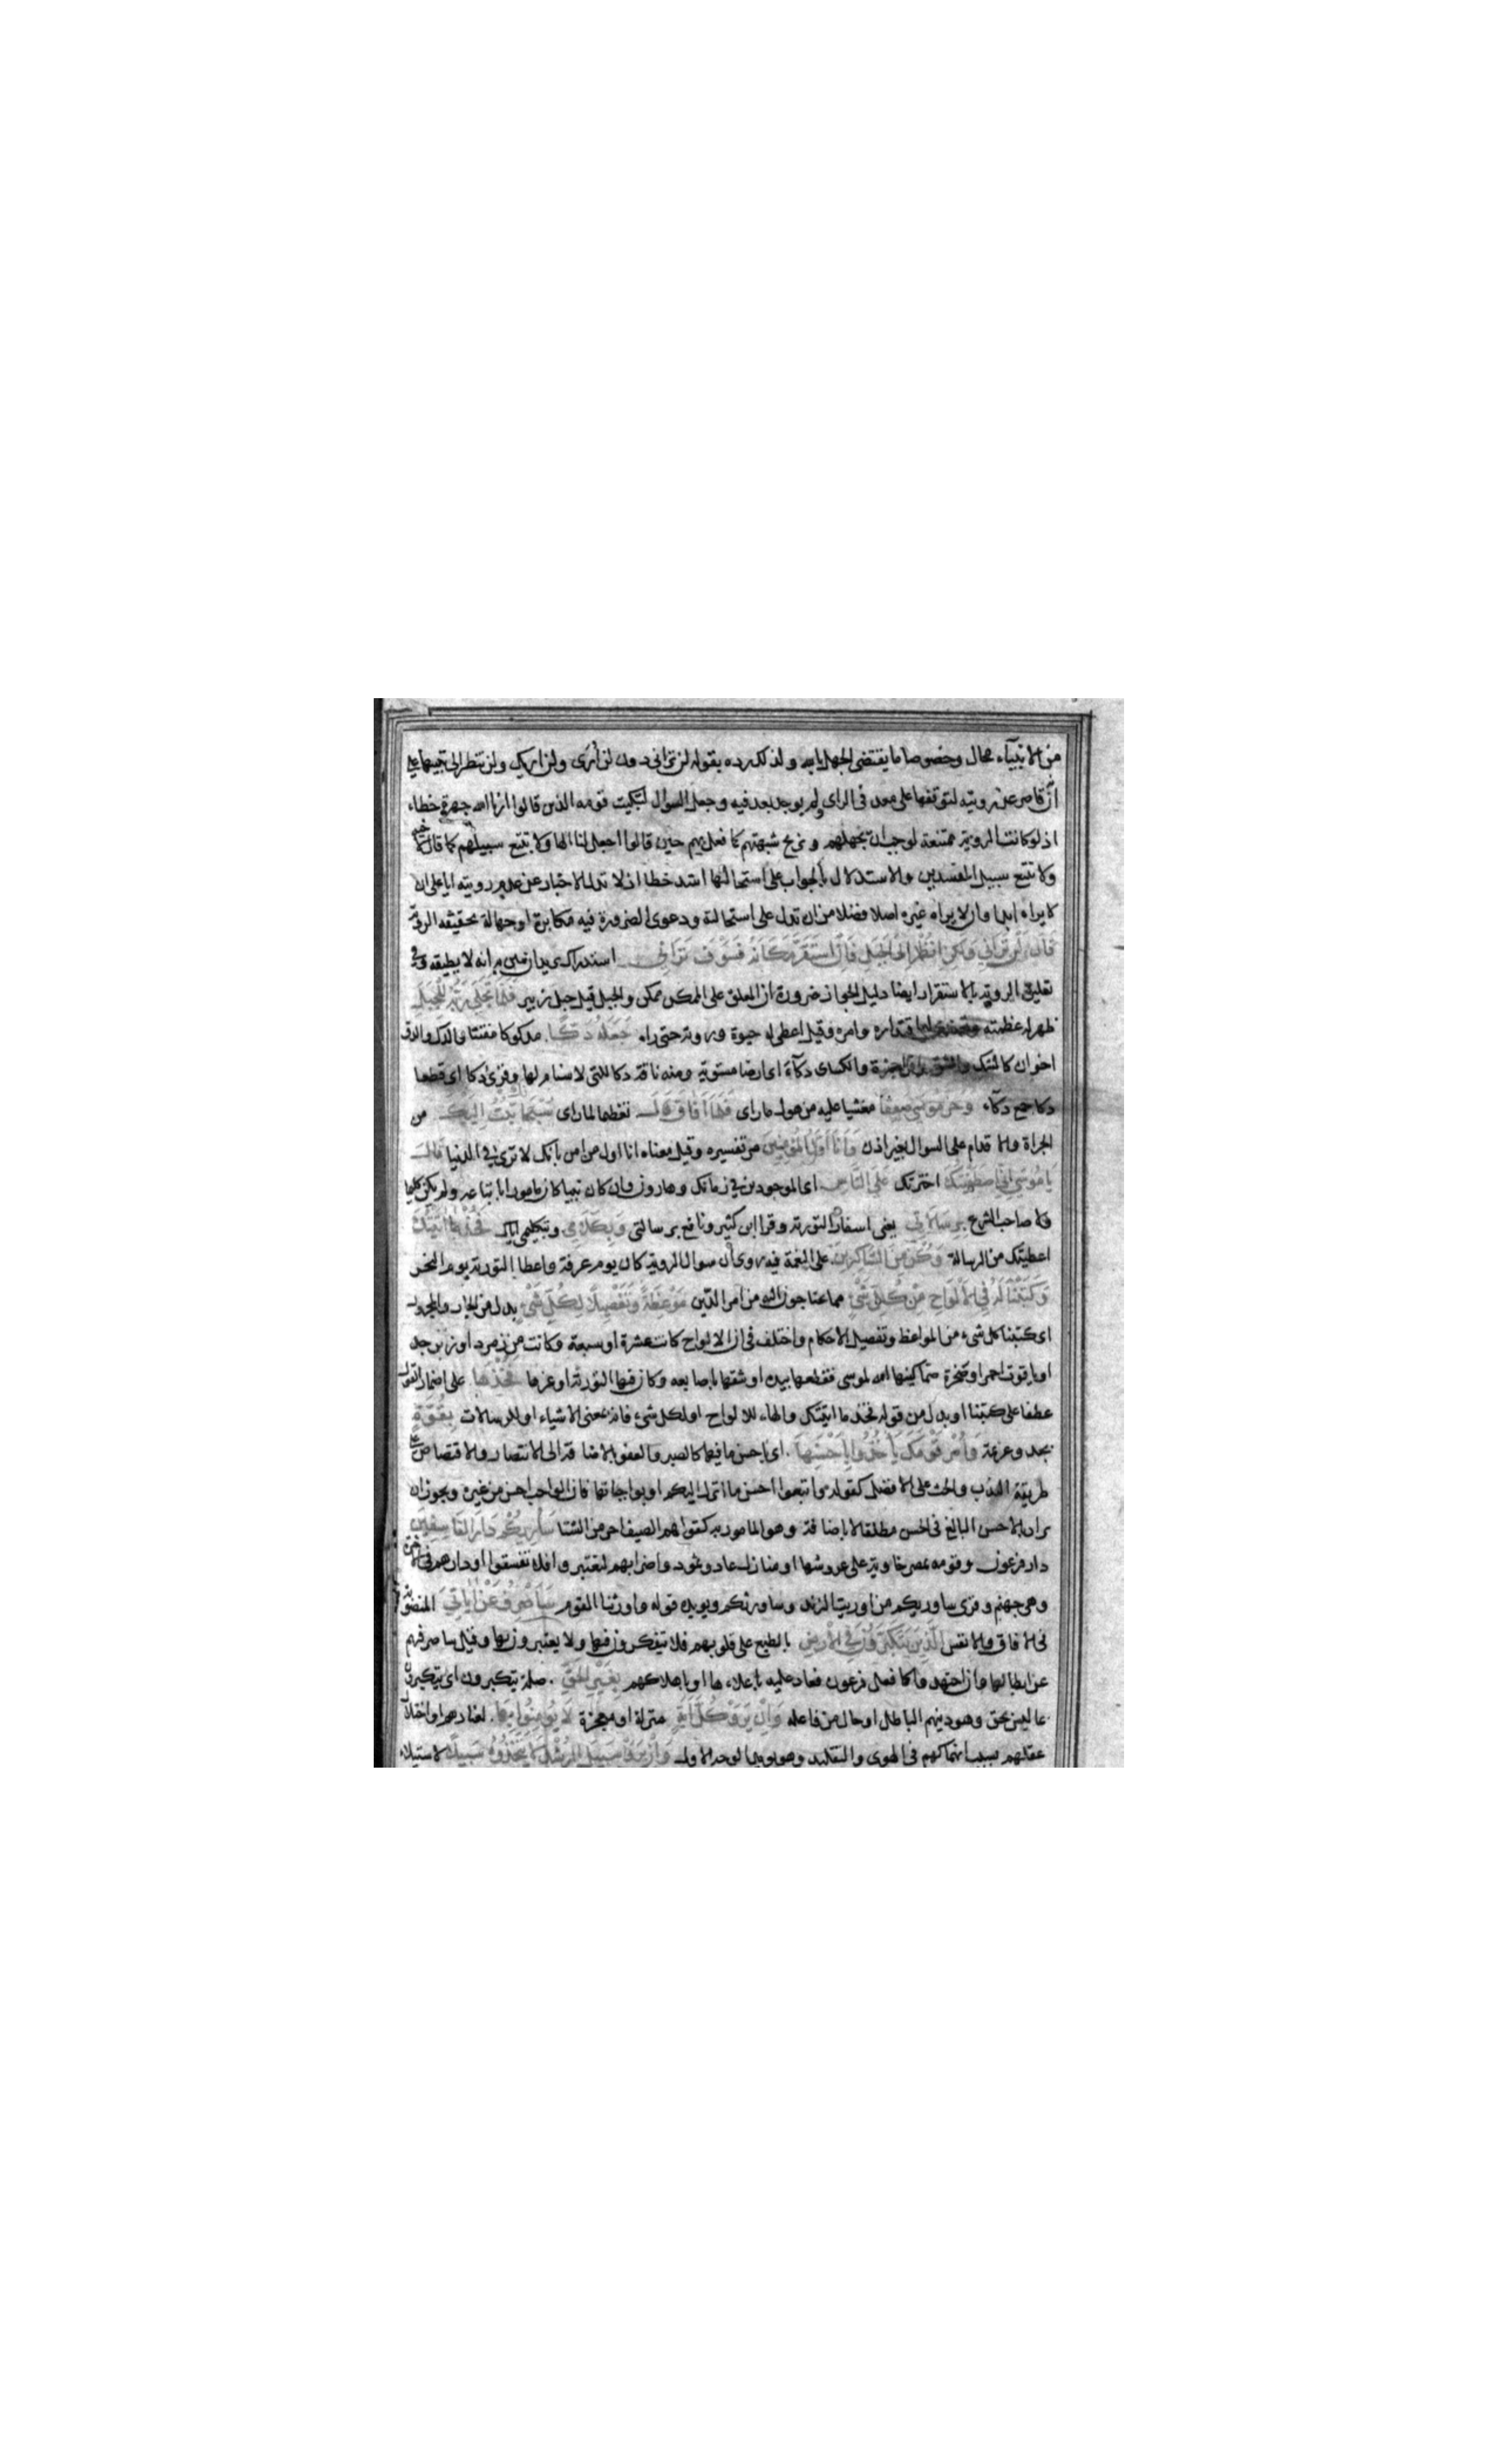 من الانبياء محال وخصوصا ما يقتضى الجهل بالله ولذلك رده بقوله لن ترانى دون لن اُرَى ولن اريك ولن تنظر الى تنبيها على
انه قاصر عن رويته لتوقفها على معد فى الراى ولم يوجد بعد فيه وجعل السوال لتبكيت قومه الذين قالوا ارنا الله جهرة خطاء
اذ لو كانت الروية ممتنعة لوجب ان يجهلهم ويزيح شبهتهم كما فعل بهم حين قالوا اجعل لنا الها ولا تتبع سبيلهم كما قال لاخيه
ولا تتبع سبيل المفسدين والاستدلال بالجواب على استحالتها اشد خطا اذ لا تدل الاخبار عن عدم رويته اياه على ان
لا يراه ابدا وان لا يراه غيره اصلا فضلا من ان تدل على استحالته ودعوى الضرورة فيه مكابرة او جهالة بحقيقة الروية
قَالَ لَنْ تَرَانِي وَلَكِنِ انْظُرْ اِلَى الْجَبَلِ فَاِنِ اسْتَقَرَّ مَكَانَهُ فَسَوْفَ تَرَانِي استدراك يريد ان يبين به انه لا يطيقه وفى
تعليق الروية بالاستقرار ايضا دليل الجواز ضرورة ان المعلق على الممكن ممكن والجبل قيل جبل زبير فَلَمَّا تَجَلَّى رَبُّهُ لِلْجَبَلِ
ظهر له عظمته وتصدى لها اقتداره وامره وقيل اعطى له حيوة وروية حتى راه جَعَلَهُ دَكًّا مدكوكا مفتتا والدك والدق
اخوان كالشك والشق وقرا حمزة والكساى دكآءَ اى ارضا مستوية ومنه ناقة دكا للتى لا سنام لها وقرئ دكا اى قطعا
دكا جمع دكآء وَخَرَّ مُوسَى صَعِقًا مغشيا عليه من هول ما راى فَلَمَّا اَفَاقَ قَالَ تعظيما لما راى سُبْحَانَكَ تُبْتُ اِلَيْكَ من
الجراة والاقدام على السوال بغير اذن وَاَنَا اَوَّلُ الْمُؤْمِنِينَ مر تفسيره وقيل معناه انا اول من امن بانك لا ترى فى الدنيا قَالَ
يَا مُوسَى اِنِّي اصْطَفَيْتُكَ اخترتك عَلَى النَّاسِ اى الموجودين فى زمانك وهارون وان كان نبيا كان مامورا باتباعه ولم يكن كليما
ولا صاحب الشرع بِرِسَالَاتِي يعنى اسفار التورية وقرا ابن كثير ونافع برسالتى وَبِكَلَامِي وبتكليمى اياك فَخُذْ مَا اٰتَيْتُكَ
اعطيتك من الرسالة وَكُنْ مِنَ الشَّاكِرِينَ على النعمة فيه روى ان سوال الروية كان يوم عرفة واعطا التورية يوم النحر
وَكَتَبْنَا لَهُ فِي الْاَلْوَاحِ مِنْ كُلِّ شَيْءٍ مما يحتاجون اليه من امر الدين مَوْعِظَةً وَتَفْصِيلًا لِكُلِّ شَيْءٍ بدل من الجار والمجرور
اى كتبنا كل شىء من المواعظ وتفصيل الاحكام واختلف فى ان الالواح كانت عشرة او سبعة وكانت من زمرد او زبرجد
او ياقوت احمر او صخرة صما لينها الله لموسى فقطعها بيده او شقها باصابعه وكان فيها التورية او غيرها فَخُذْهَا على اضمار القول
عطفا على كتبنا او بدل من قوله فخذ ما اتيتك والهاء للالواح او لكل شىء فانه بمعنى الاشياء او للرسالات بِقُوَّةٍ
بجد وعزيمة وَأْمُرْ قَوْمَكَ يَأْخُذُوا بِاَحْسَنِهَا اى باحسن ما فيها كالصبر والعفو بالاضافة الى الانتصار والاقتصاص على
طريقة الندب والحث على الافضل كقوله واتبعوا احسن ما انزل اليكم او بواجباتها فان الواجب احسن من غيره ويجوز ان
يراد بالاحسن البالغ فى الحسن مطلقا لا بالاضافة وهو المامور به كقولهم الصيف احر من الشتا سَاُرِيكُمْ دَارَ الْفَاسِقِينَ
دار فرعون وقومه بمصر خاوية على عروشها او منازل عاد وثمود واضرابهم لتعتبروا فلا تفسقوا او دارهم فى الاخرة
وهى جهنم وقرى ساوريكم من اوريت الزند وساورثكم ويويده قوله واورثنا القوم سَاَصْرِفُ عَنْ اٰيَاتِيَ المنصوبة
فى الافاق والانفس الَّذِينَ يَتَكَبَّرُونَ فِي الْاَرْضِ بالطبع على قلوبهم فلا يتفكرون فيها ولا يعتبرون بها وقيل ساصرفهم
عن ابطالها وان اجتهدوا كما فعل فرعون فعاد عليه باعلاءها او باهلاكهم بِغَيْرِ الْحَقِّ صلة يتكبرون اى يتكبرون
بما ليس بحق وهو دينهم الباطل او حال من فاعله وَاِنْ يَرَوْا كُلَّ اٰيَةٍ منزلة او معجزة لَا يُؤْمِنُوا بِهَا لعنادهم او اختلال
عقلهم بسبب انهماكهم فى الهوى والتقليد وهو يويد الوجه الاول وَاِنْ يَرَوْا سَبِيلَ الرُّشْدِ لَا يَتَّخِذُوهُ سَبِيلًا لاستيلاء